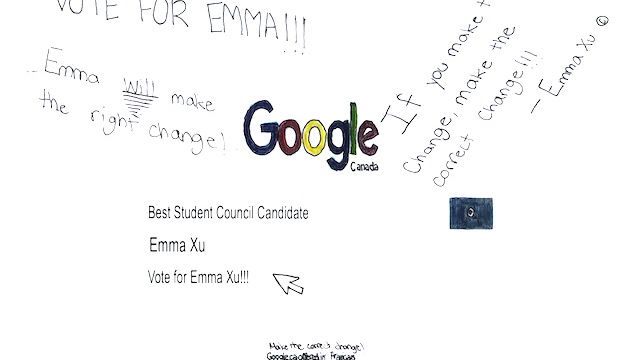 VOTE FOR EMMA!!!
Emma will make
the right change!
If you make the
change, make the
correct change!!!
- Emma Xu
Google
Canada
Best Student Council Candidate
Emma Xu
Vote for Emma Xu!!!
Make the correct change!
Google.ca offered in Français